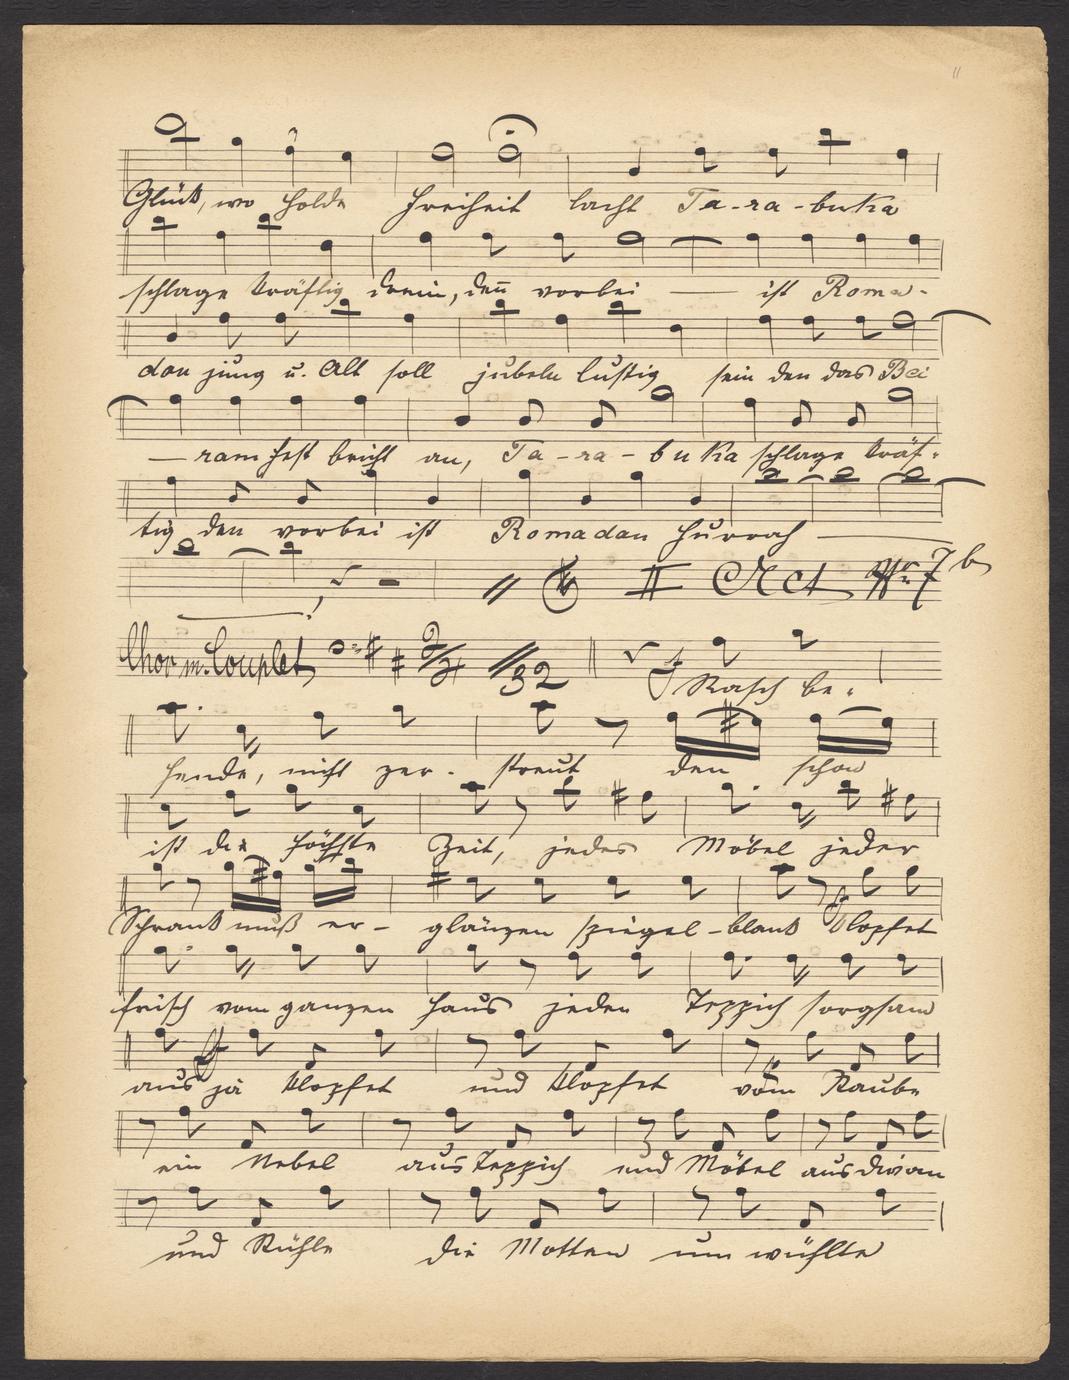 11
Glück, wo holde Freiheit lacht Ta-ra-buka
schlage kräftig drein, den̄ vorbei — ist Roma-
dan jung u. Alt soll jubeln lustig sein den das Bei
— ram fest bricht an, Ta-ra-buka schlage kräf-
tig den vorbei ist Romadan Hurrah —
II Act Nr. 7b
Chor m. Couplet 2/4 32 Rasch be-
hende, nicht zer- streut den schon
ist die höchste Zeit, jedes Möbel jeder
Schrank muß er- glänzen spiegel-blank Klopfet
frisch vom ganzen Haus jeden Teppich sorgsam
aus ja klopfet und klopfet vom Staube
ein Nebel aus Teppich und Möbel aus divan
und Stühle die Motten um wühlte